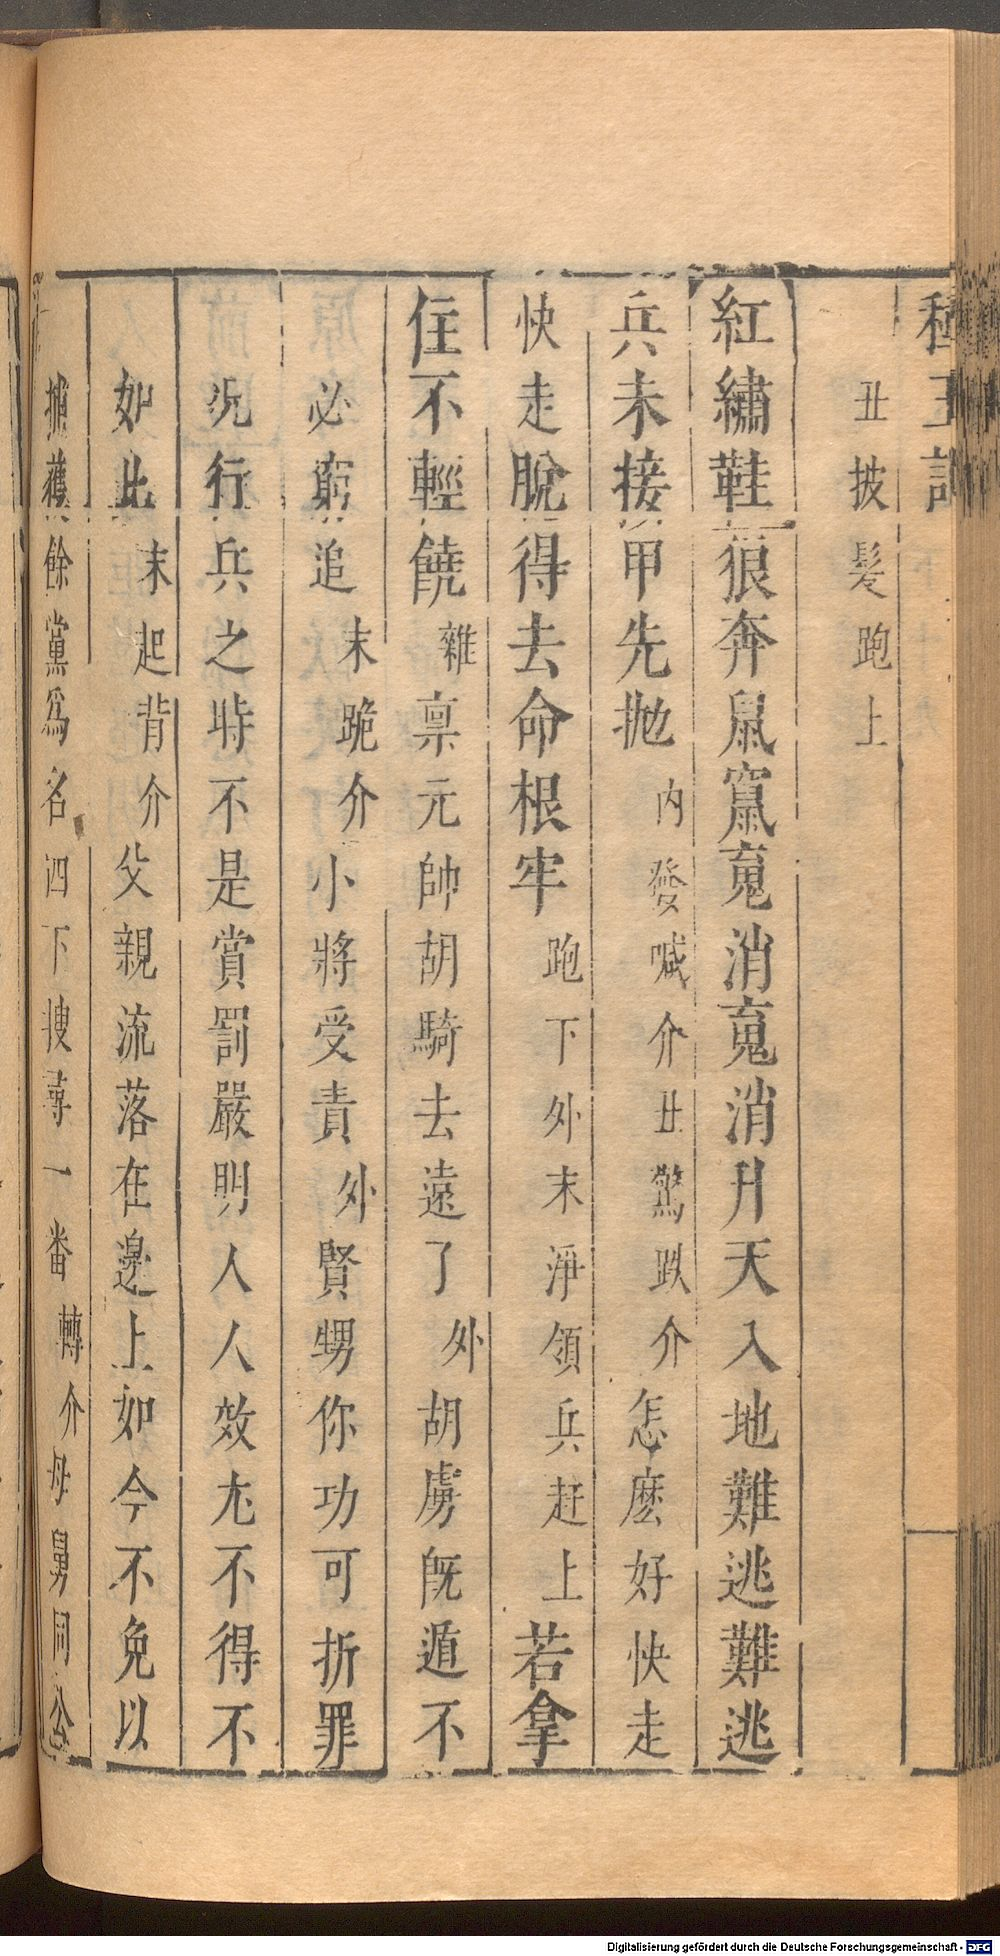 種玉記
丑披髮跑上
紅繡鞋狼奔鼠竄䰟消䰟消升天入地難逃難逃
兵未接甲先抛內發喊介丑驚跌介怎麽好快走
快走脫得去命根牢跑下外末淨領兵赶上若拿
住不輕饒雜禀元帥胡騎去遠了外胡虜旣遁不
必窮追末跪介小將受責外賢甥你功可折罪
况行兵之時不是賞罰嚴明人人效尤不得不
如此末起背介父親流落在邊上如今不免以
擒獲餘黨爲名四下搜尋一番轉介母舅同公
Digitalisierung gefördert durch die Deutsche Forschungsgemeinschaft - DFG